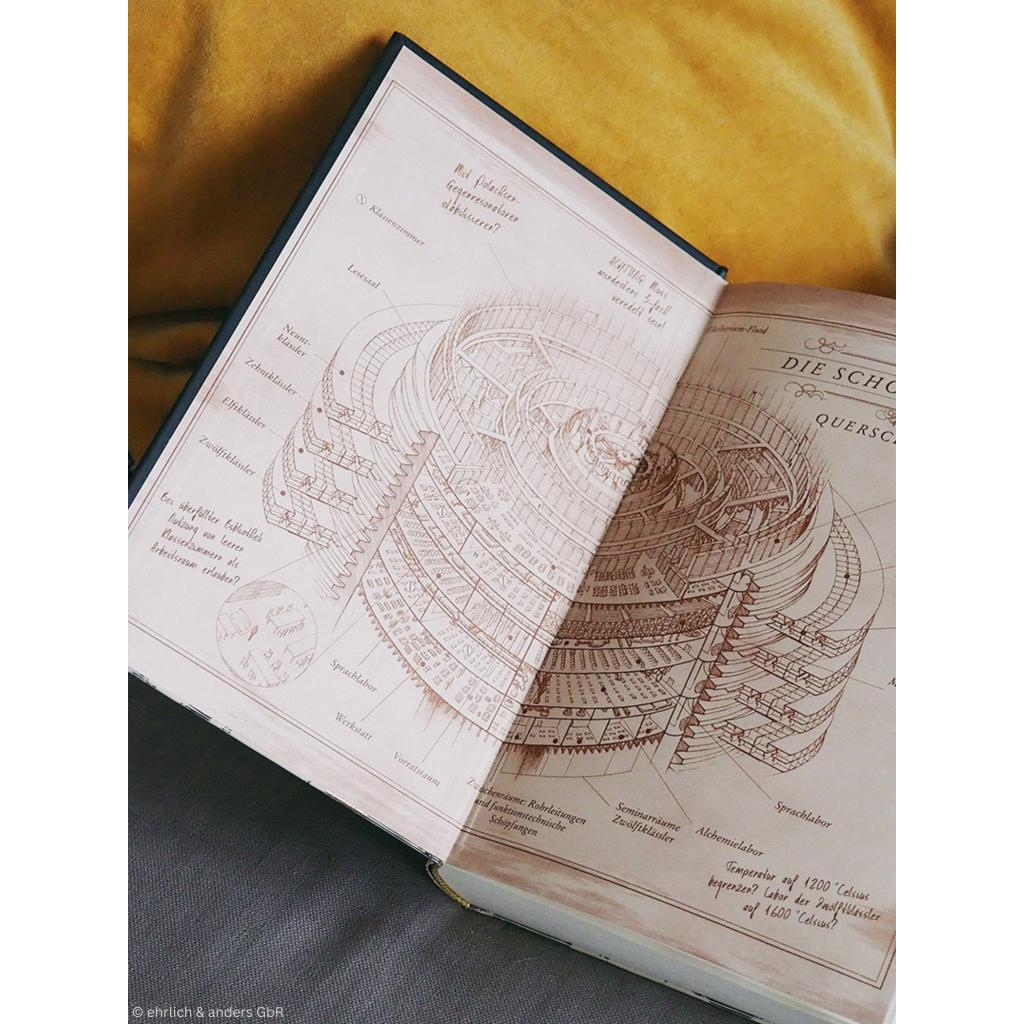 Mit Polachsen-
Gegenresonatoren
stabilisieren?
Klassenzimmer
ACHTUNG: Muss
mindestens 3-fach
veredelt sein!
Lesesaal
Neunt-
klässler
Zehntklässler
Elftklässler
Zwölftklässler
Bei überfüllter Bibliothek
Nutzung von leeren
Klassenzimmern als
Arbeitsraum erlauben?
Sprachlabor
Werkstatt
Vorratsraum
-Fluid
DIE SCHO
QUERSC
M
Zwischenräume: Rohrleitungen
und funktionstechnische
Schöpfungen
Seminarräume
Zwölftklässler
Alchemielabor
Sprachlabor
Temperatur auf 1200 °Celsius
begrenzen? Labor der Zwölftklässler
auf 1600 °Celsius?
© ehrlich & anders GbR